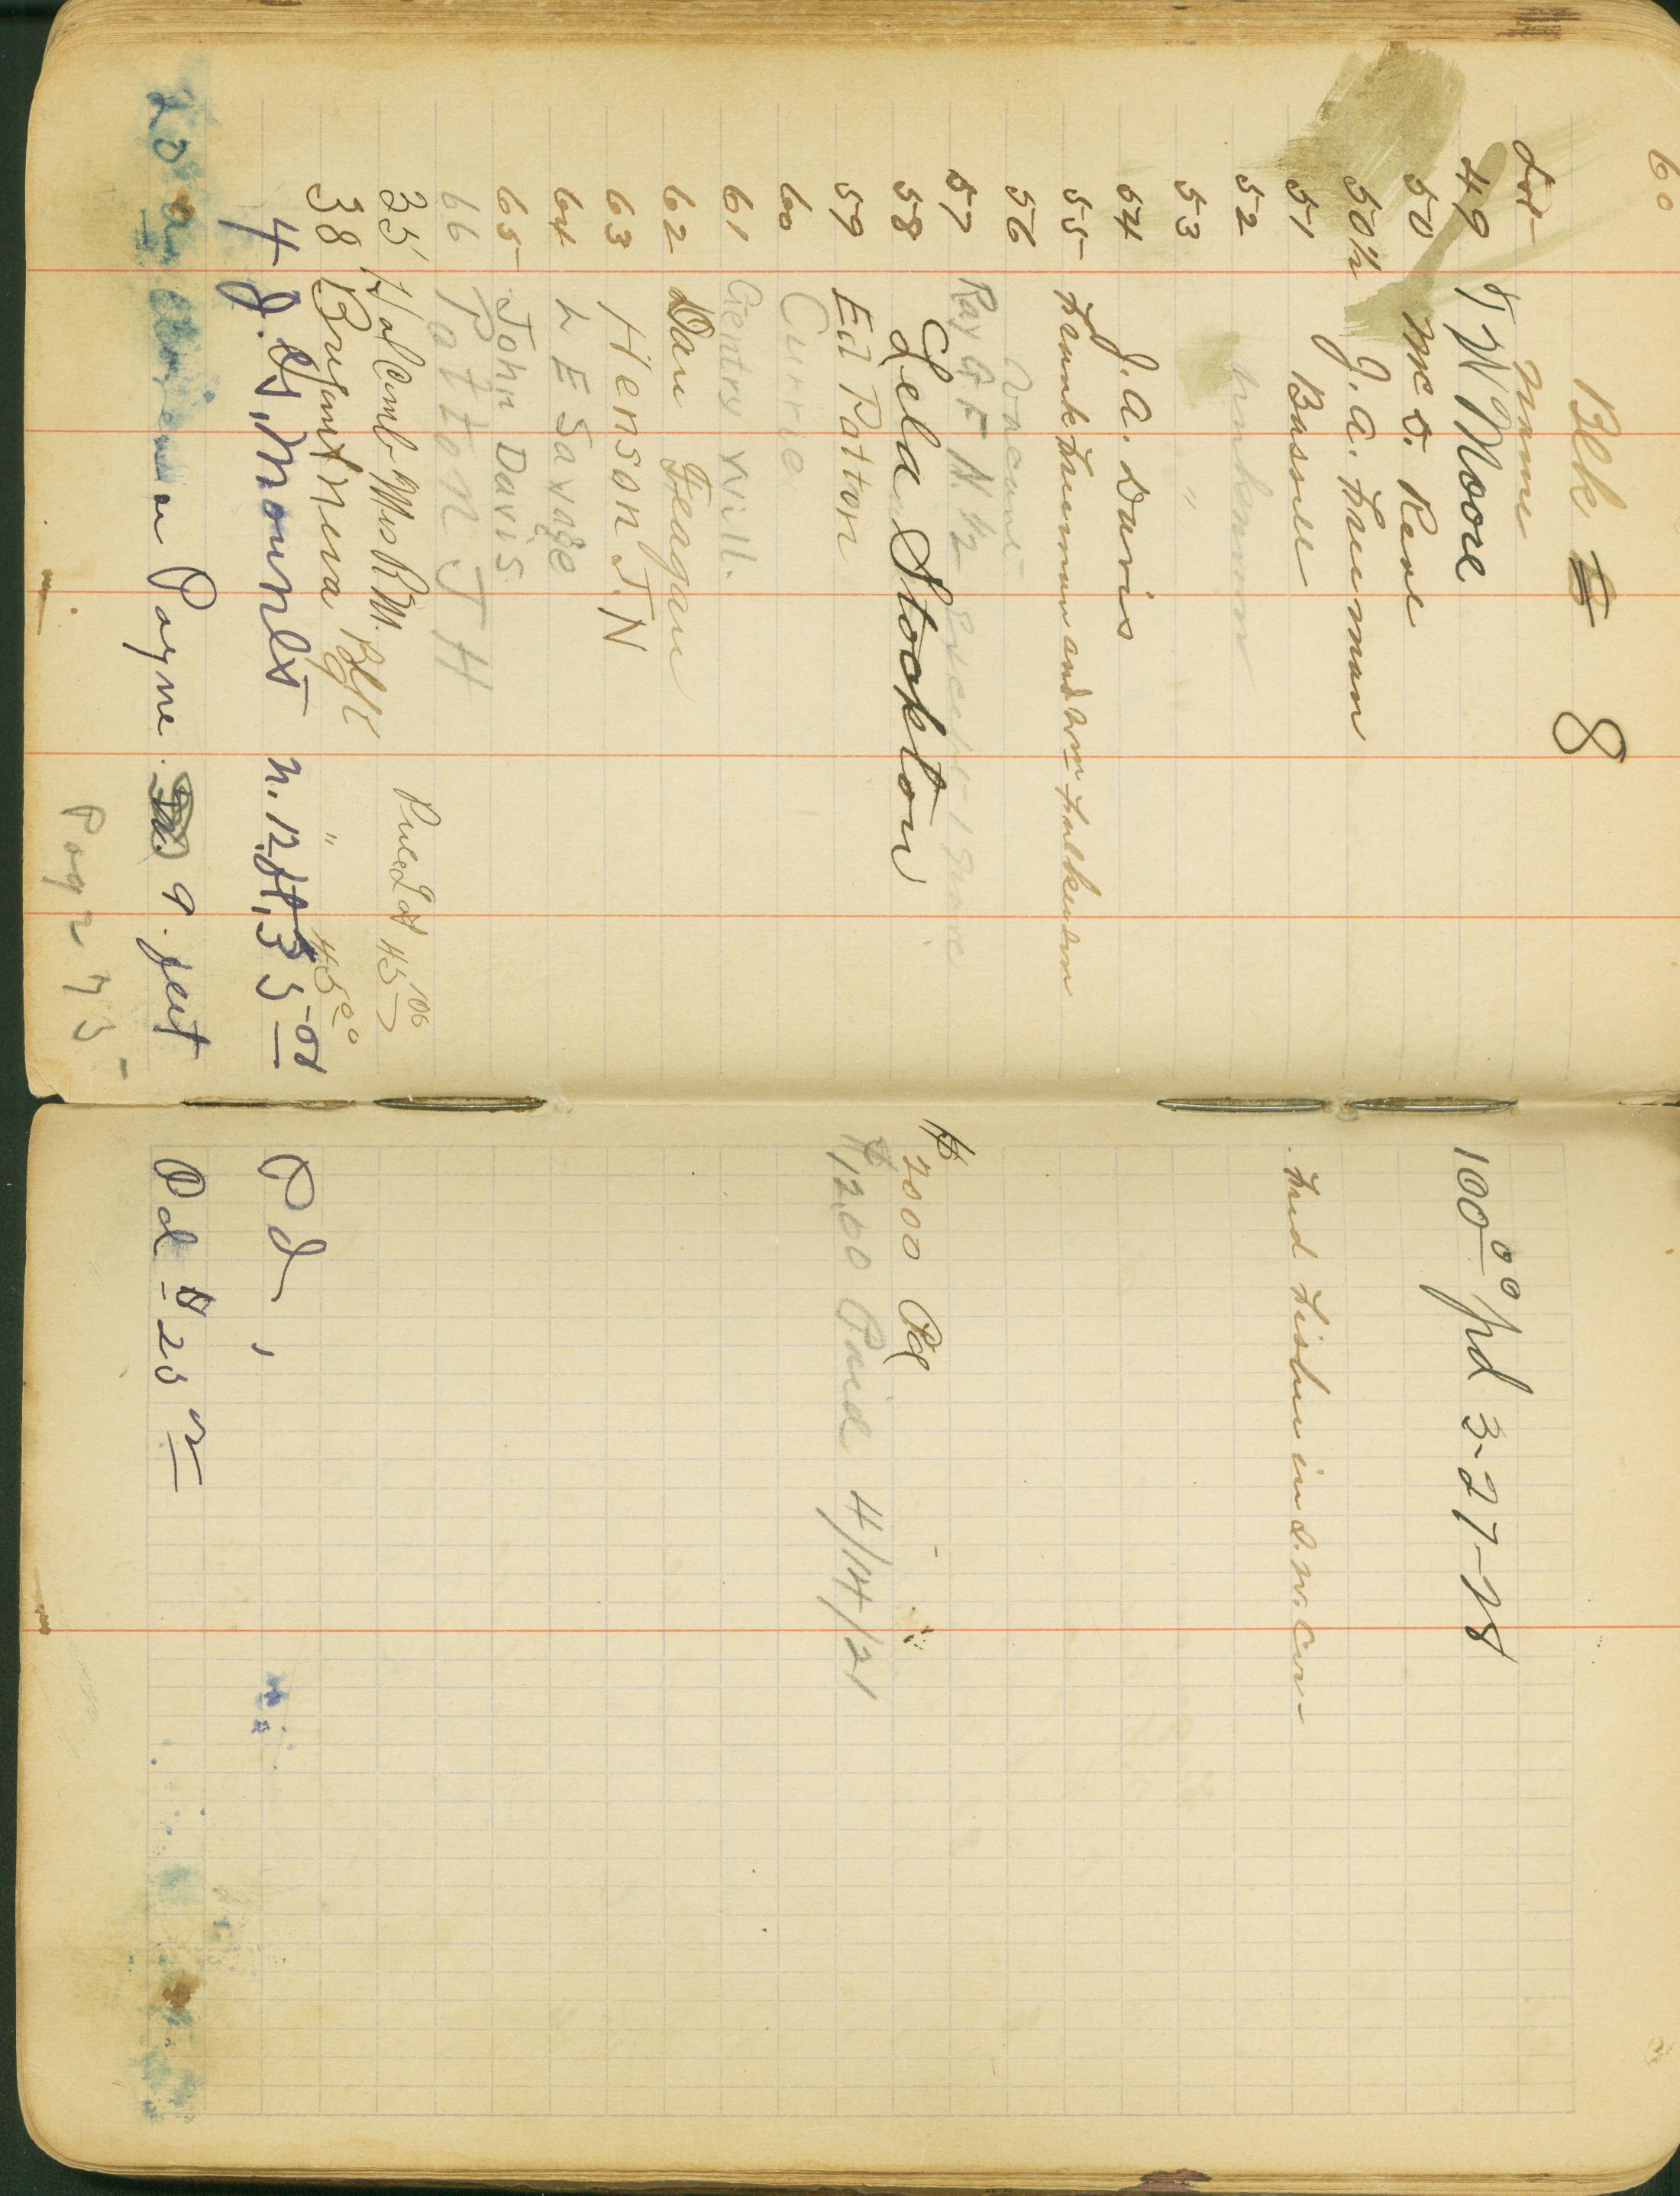 60
Blk 8
Lot Name
49 J W Moore 100 00 pd 3-27-28
50 Mc O. Rene
50½ J. A. Freeman
51 Bassell Fred Fisher in S. W. Cor
52 unknown
53 "
54 J. A. Davis
55 Frank Freeman and Wm Falkerson
56 Vacant
57 Ray G F N ½ except 1 grave
58 Lela Stockton $20 00 Pd
59 Ed Patton $12.00 Paid 4/14/21
60 Currie
61 Gentry Will.
62 Dan Feagan
63 Henson J. N
64 L E Savage
65 John Davis
66 Patton J H
35 Holcomb Mrs R.M. 45 00
38 Bryant Nera Blg 8 " 45 00
4 J. Mounts N. 12 ft, 35 Pd,
20 Payne 9 feet Pd $25
Page 73-